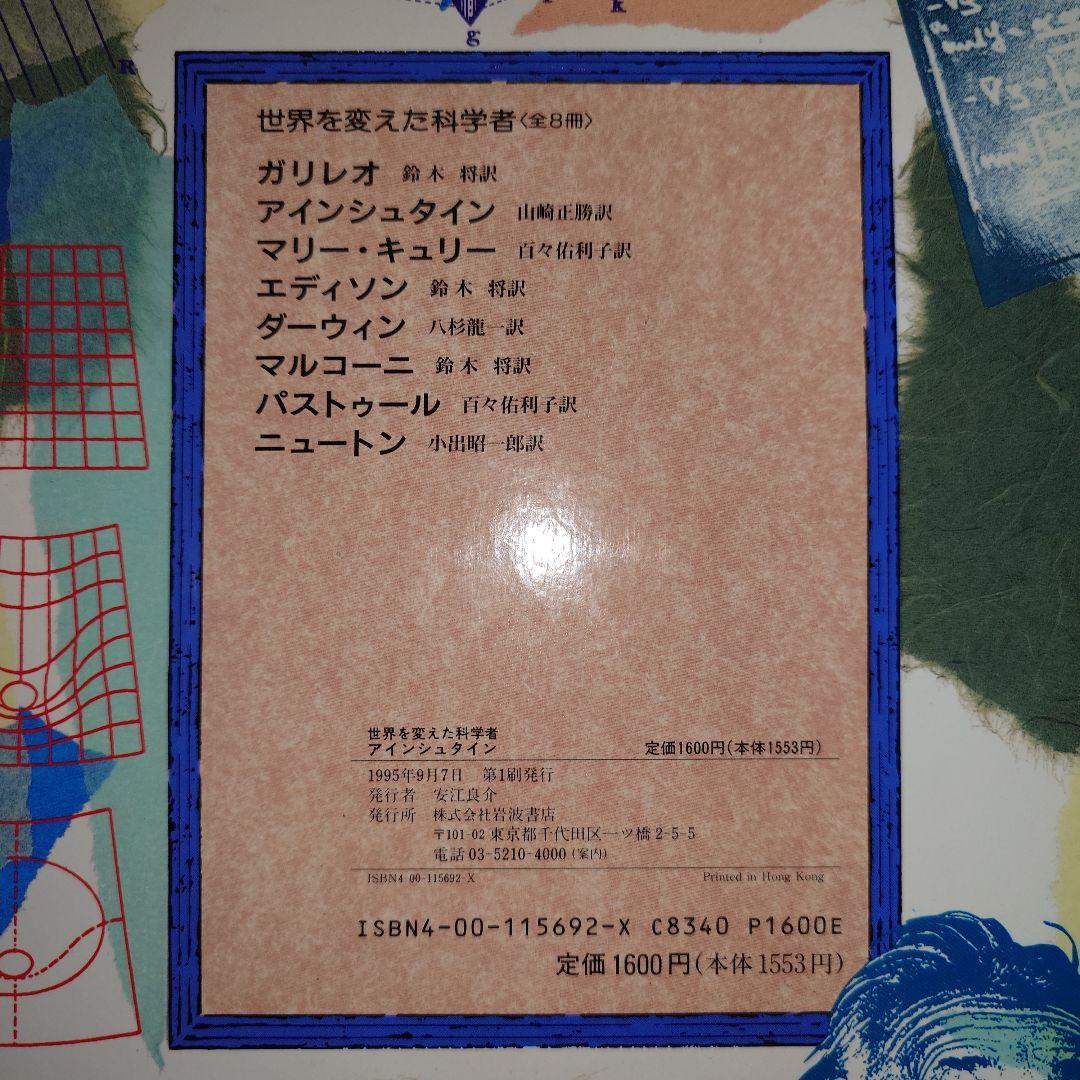 g
k
R
世界を変えた科学者〈全8冊〉
ガリレオ 鈴木 将訳
アインシュタイン 山崎正勝訳
マリー・キュリー 百々佑利子訳
エディソン 鈴木 将訳
ダーウィン 八杉龍一訳
マルコーニ 鈴木 将訳
パストゥール 百々佑利子訳
ニュートン 小出昭一郎訳
世界を変えた科学者
アインシュタイン 定価1600円(本体1553円)
1995年9月7日 第1刷発行
発行者 安江良介
発行所 株式会社岩波書店
〒101-02 東京都千代田区一ツ橋2-5-5
電話 03-5210-4000(案内)
ISBN4 00-115692-X Printed in Hong Kong
ISBN4-00-115692-X C8340 P1600E
定価1600円(本体1553円)